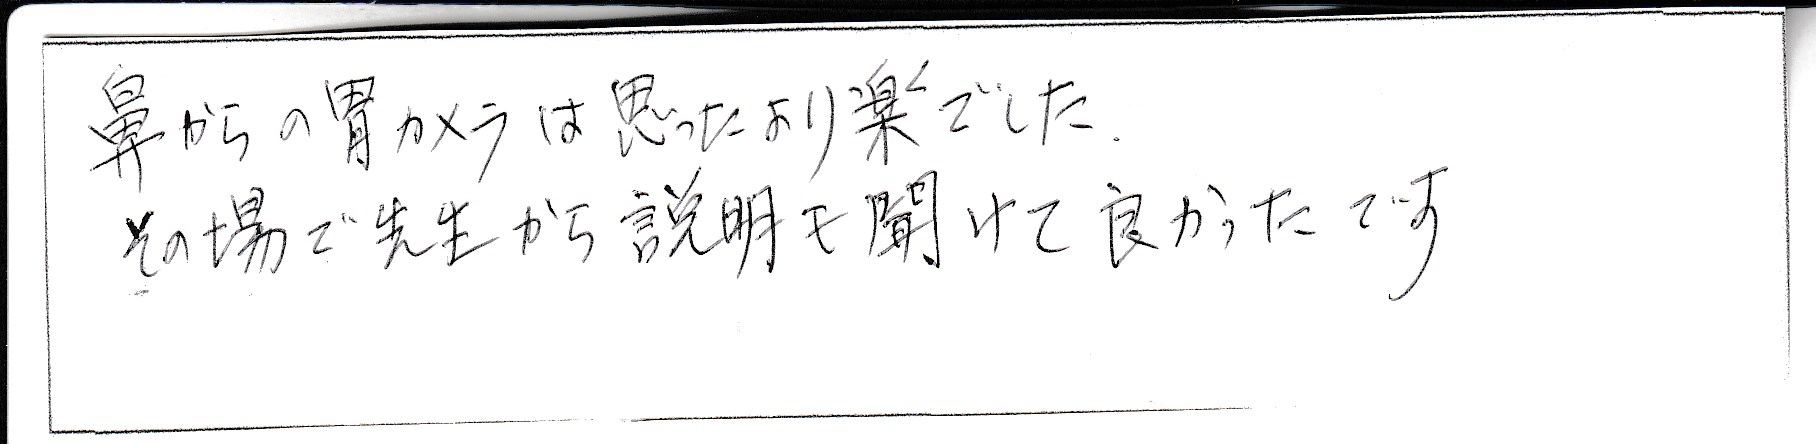 鼻からの胃カメラは思ったより楽でした.
その場で先生から説明も聞けて良かったです